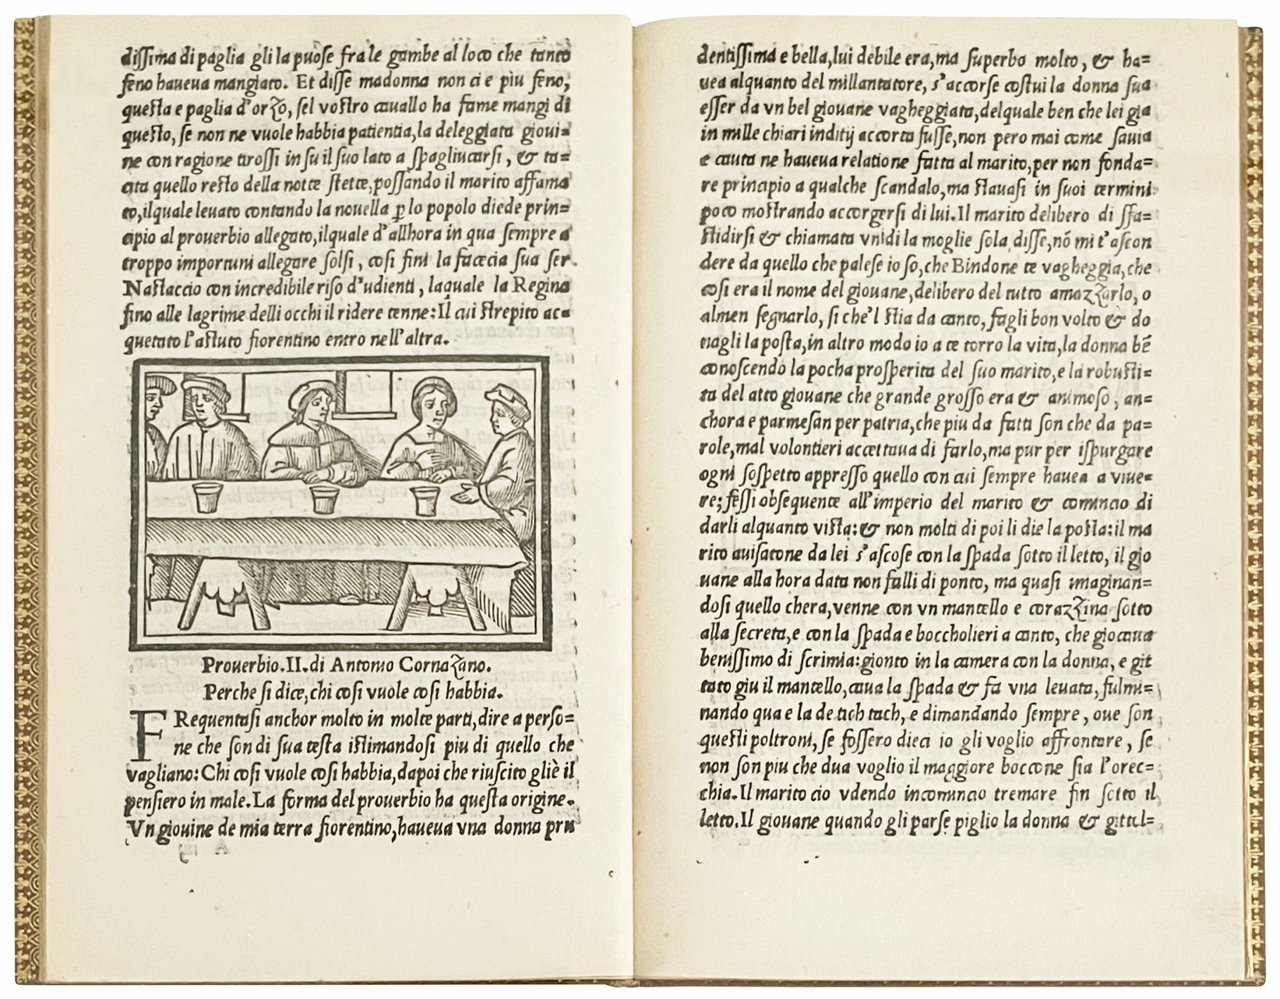 dissima di paglia gli la puose fra le gambe al loco che tanto
feno haueua mangiato. Et disse madonna non ci e più feno,
questa e paglia d'orzo, sel vostro cauallo ha fame mangi di
questo, se non ne vuole habbia patientia, la deleggiata gioui=
ne con ragione tirossi in su il suo lato a spagliucarsi, & ta=
cita quello resto della notte stette, possando il marito affama
to, ilquale leuato contando la nouella ꝑ lo popolo diede prin=
cipio al prouerbio allegato, ilquale d'allhora in qua sempre a
troppo importuni allegare solsi, cosi fini la facecia sua ser.
Nastaccio con incredibile riso d'udienti, laquale la Regina
fino alle lagrime delli occhi il ridere tenne: Il cui strepito ac=
quetato l'astuto fiorentino entro nell'altra.
Prouerbio. II. di Antonio Cornazano.
Perche si dice, chi cosi vuole cosi habbia.
FRequentasi anchor molto in molte parti, dire a perso=
ne che son di sua testa istimandosi piu di quello che
vagliano: Chi cosi vuole cosi habbia, dapoi che riuscito gliè il
pensiero in male. La forma del prouerbio ha questa origine.
Vn giouine de mia terra fiorentino, haueua vna donna pru
A iij
dentissima e bella, lui debile era, ma superbo molto, & ha=
uea alquanto del millantatore, s'accorse costui la donna sua
esser da vn bel giouane vagheggiata, delquale ben che lei gia
in mille chiari inditij accorta fusse, non pero mai come sauia
e cauta ne haueua relatione fatta al marito, per non fonda=
re principio a qualche scandalo, ma stauasi in suoi termini
poco mostrando accorgersi di lui. Il marito delibero di sfa=
stidirsi & chiamata vnidi la moglie sola, disse, nō mi t'ascon
dere da quello che palese io so, che Bindone te vagheggia, che
cosi era il nome del giouane, delibero del tutto amazzarlo, o
almen segnarlo, si che'l stia da canto, fagli bon volto & do
nagli la posta, in altro modo io a te torro la vita, la donna bē
conoscendo la pocha prosperita del suo marito, e la robusti=
ta del atto giouane che grande grosso era & animoso, an=
chora e parmesan per patria, che piu da fatti son che da pa=
role, mal volontieri accettaua di farlo, ma pur per ispurgare
ogni sospetto appresso quello con cui sempre hauea a viue=
re; fessi obsequente all'imperio del marito & comincio di
darli alquanto vista: & non molti di poi li die la posta: il ma
rito auisatone da lei s'ascose con la spada sotto il letto, il gio
uane alla hora data non falli di ponto, ma quasi imaginan=
dosi quello chera, venne con vn mantello e corazzina sotto
alla secreta, e con la spada e boccholieri a canto, che giocaua
benissimo di scrimia: gionto in la camera con la donna, e git
tato giu il mantello, caua la spada & fa vna leuata, fulmi=
nando qua e la de tich tach, e dimandando sempre, oue son
questi poltroni, se fossero dieci io gli voglio affrontare, se
non son piu che dua voglio il maggiore boccone sia l'orec=
chia. Il marito cio vdendo incomincio tremare fin sotto il
letto. Il giouane quando gli parse piglio la donna & gittel=